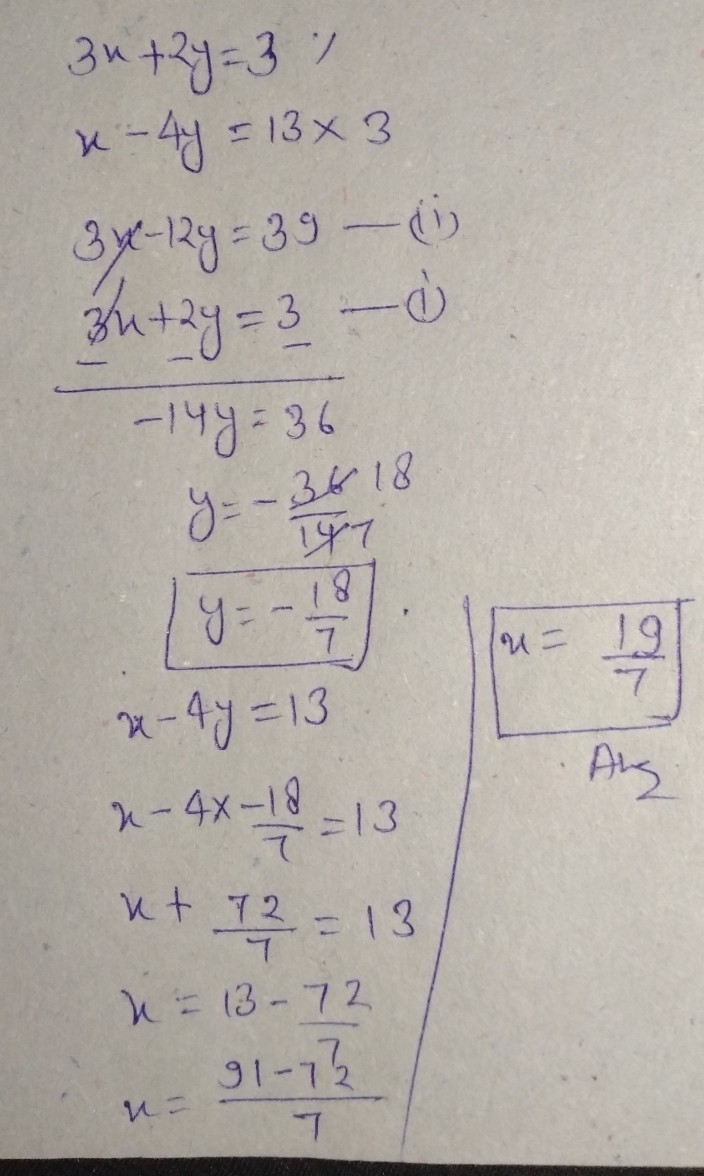 3x+2y=3
x-4y=13×3
3x-12y=39 —(ii)
3x+2y=3 —(i)
- - -
-14y=36
y=-36/14 18/7
y=-18/7
x-4y=13
x-4×-18/7=13
x+72/7=13
x=13-72/7
x=91-72/7
x=19/7
Ans